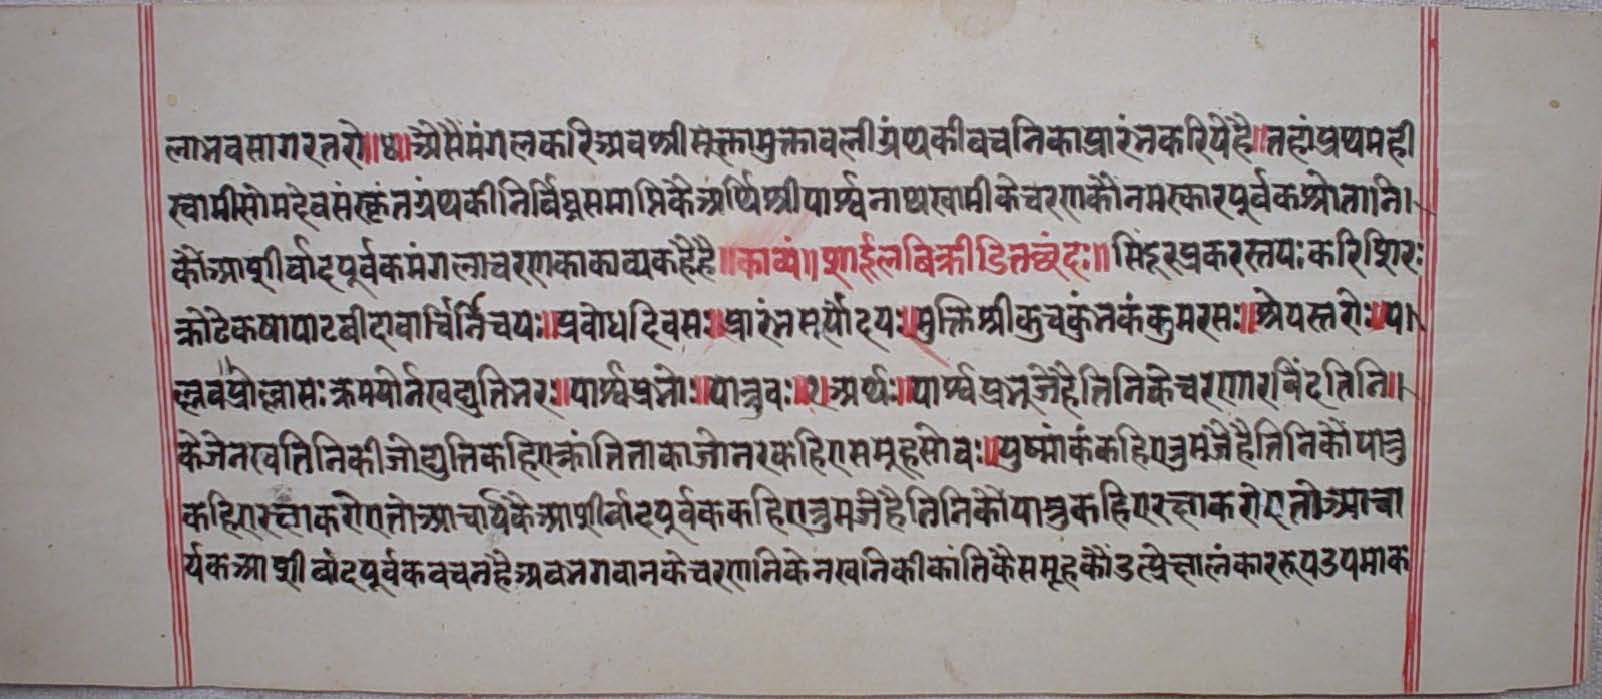 लाभवसागरतरो॥७॥अैसैंमंगलकरिअवश्रीसूक्तामुक्तावलीग्रंथकीवचनिकाप्रारंभकरियेहै॥तहांप्रथमही
स्वामीसोमदेवसंस्कृतग्रंथकीनिर्विघ्नसमाप्तिकैअर्थिश्रीपार्श्वनाथस्वामीकेचरणकौंनमस्कारपूर्वकश्रोतानि।
कौंआशीर्वादपूर्वकमंगलाचरणकाकाव्यकहैहै॥काव्यं॥शार्दूलविक्रीडितछंदः॥सिंदूरप्रकरस्तपःकरिशिरः
क्रोडेकषापाटवीदावार्चिर्निचयः॥प्रबोधदिवसः॥प्रारंभसूर्योदयः॥मुक्तिश्रीकुचकुंभकंकुमरसः॥श्रेयस्तरोः॥प।
ल्लवप्रोल्लासःक्रमयोर्नखद्युतिभरः॥पार्श्वप्रभोः॥पातुवः॥१॥अर्थः॥पार्श्वप्रभूजेहैतिनिकेचरणारविंदतिनि॥
केजेनखतिनिकीजोद्युतिकहिएक्रांतिताकाजोभरकहिएसमूहसोवः॥युष्मांकंकहिएतुमजैहैतिनिकौंपातु
कहिएरक्षाकरोएतोआचार्यकैआशीर्वादपूर्वककहिएतुमजेहैतिनिकौंपातुकहिएरक्षाकरोएतोआचा
र्यकआशीर्वादपूर्वकवचनहैअवभगवानकेचरणनिकेनखनिकीकांतिकैसमूहकौंउत्प्रेक्षालंकाररुपउपमाक